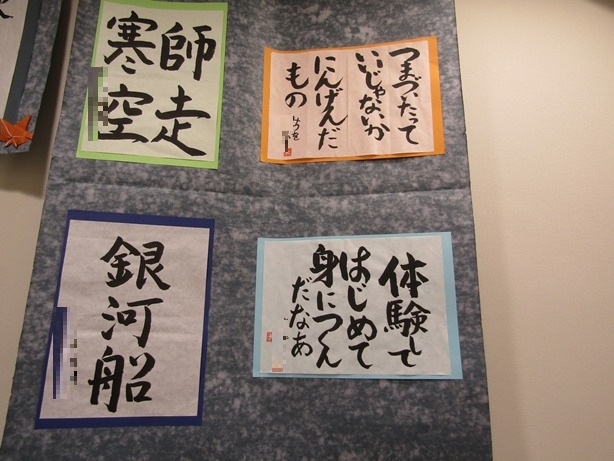 師走
寒空
つまづいたって
いいじゃないか
にんげんだ
もの
みつを
銀河船
体験して
はじめて
身につくん
だなあ